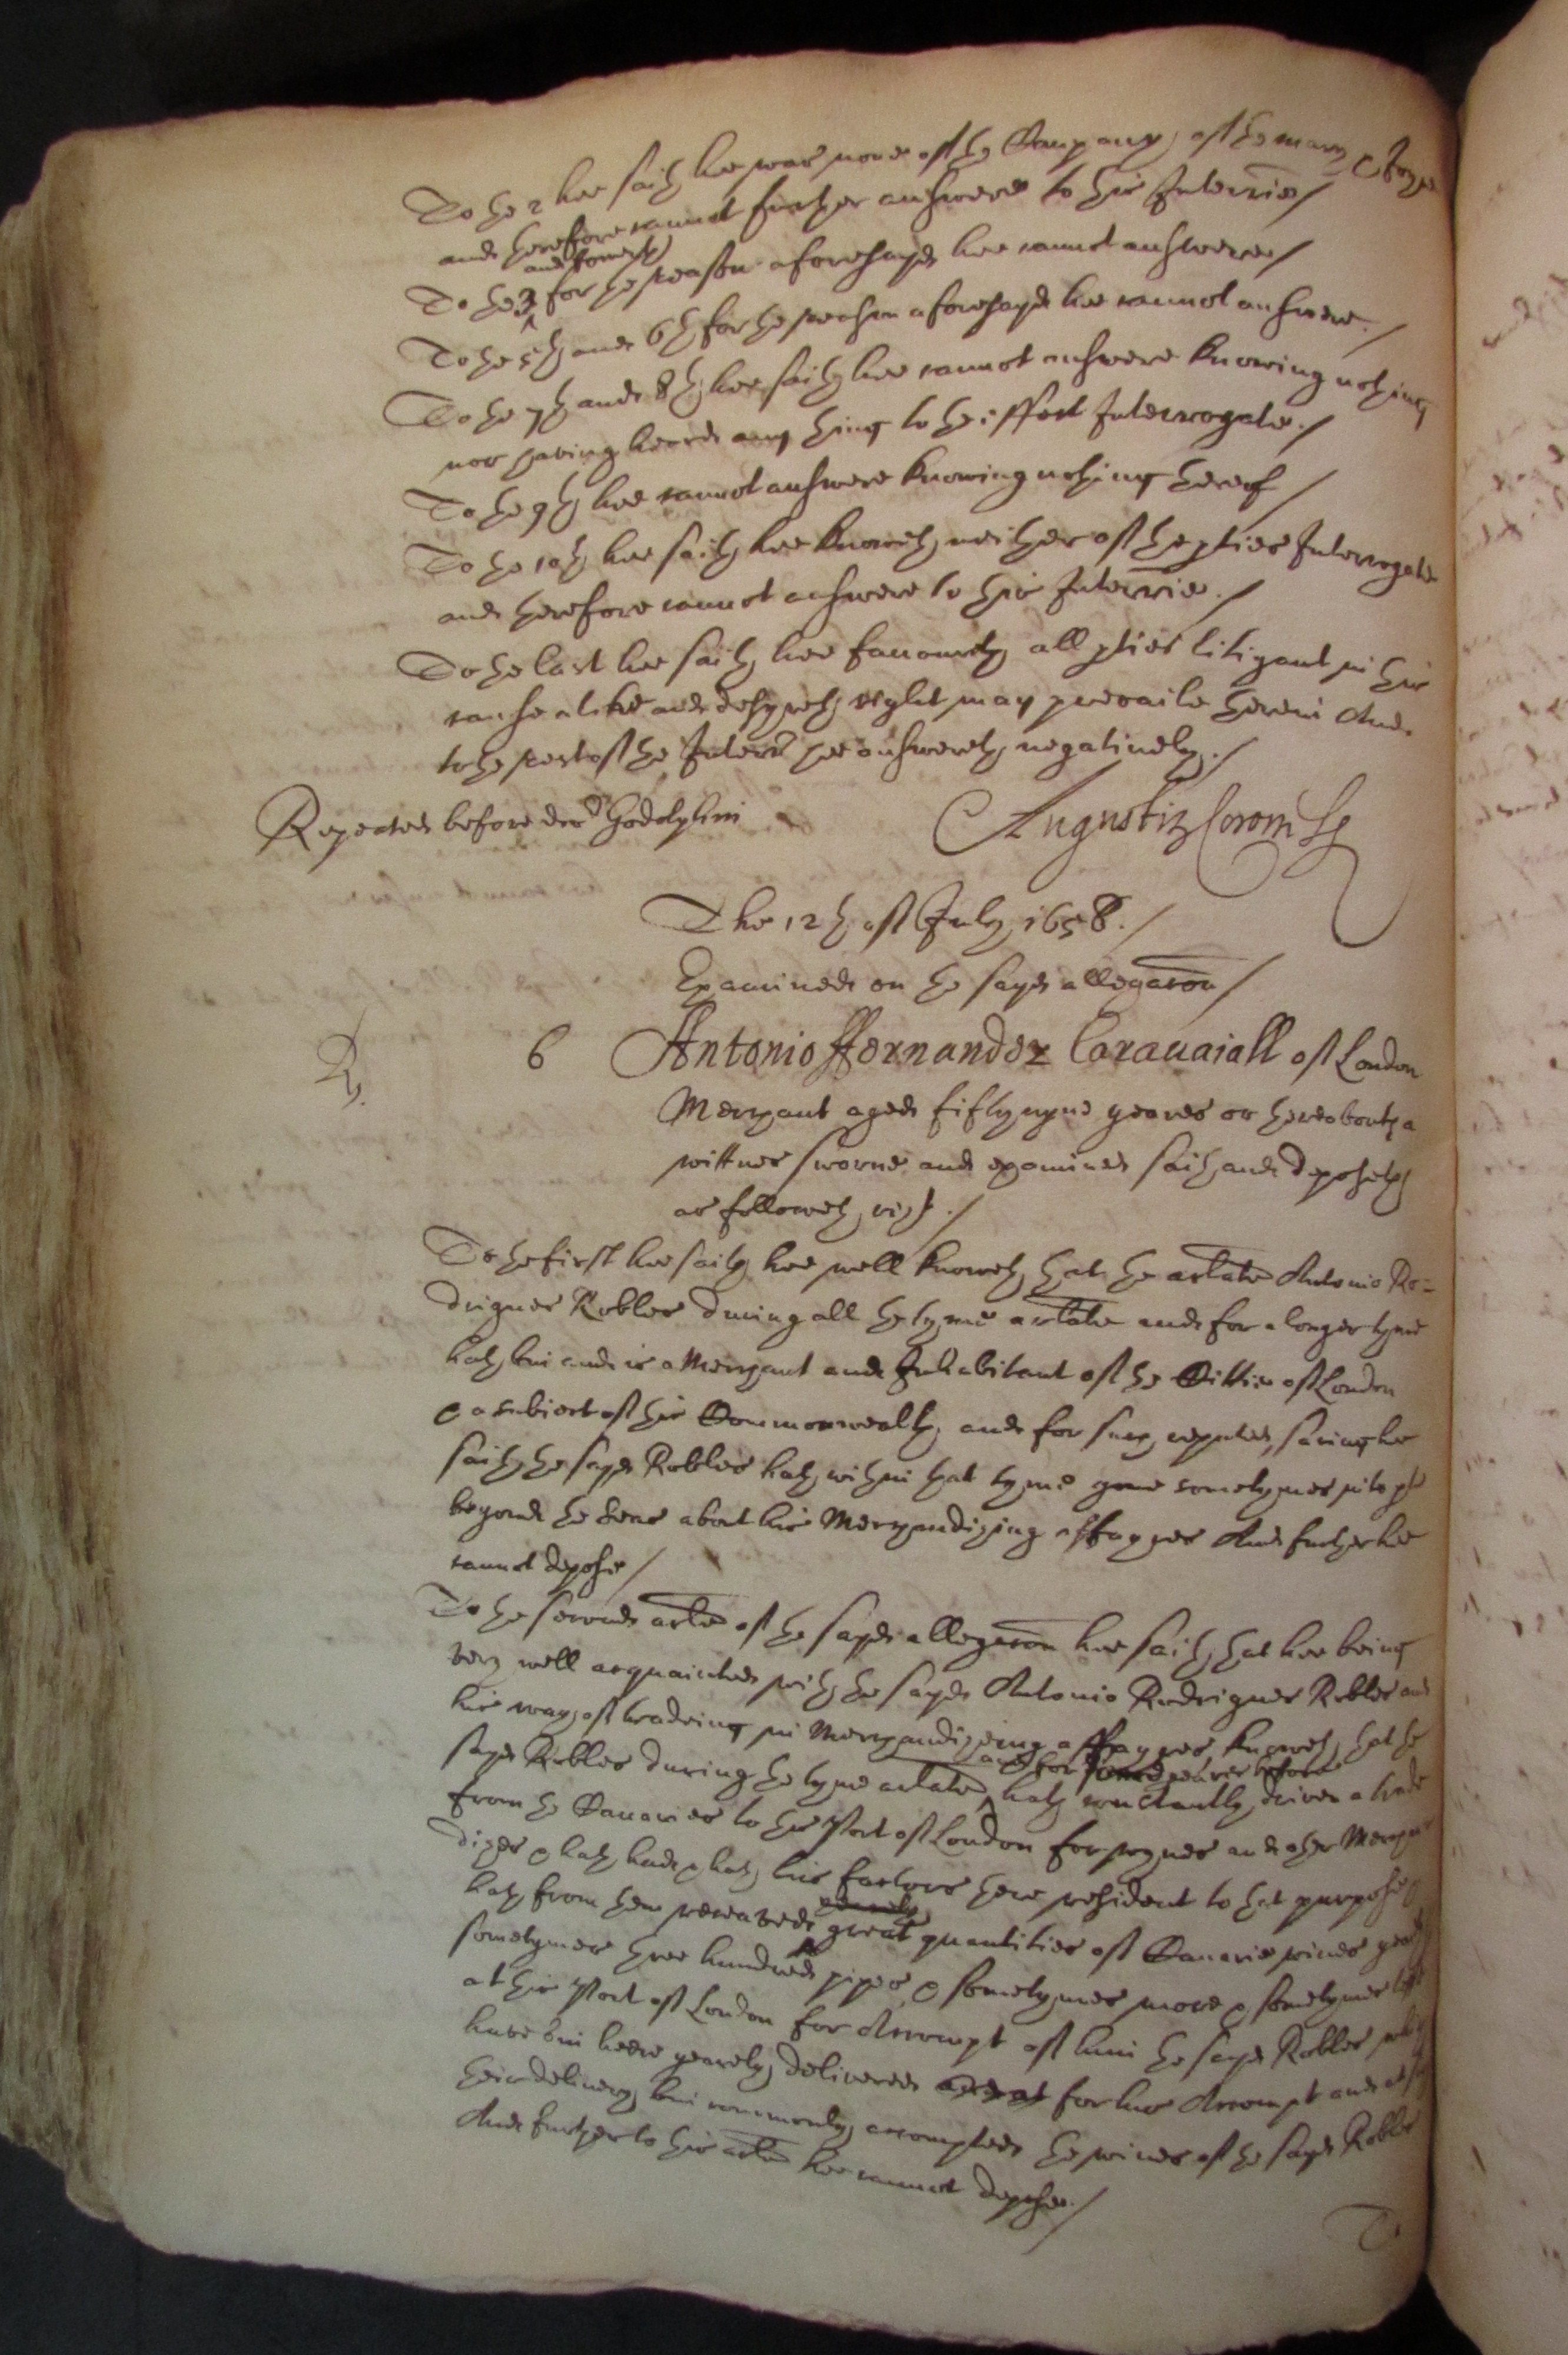 To the 2 hee saith hee was none of the Company of the Mary &
and therefore cannot further answere to this Interrie /
and fourth
To the 3 for the reason aforesayd hee cannot answere /
To the 5th and 6th for the reason aforesayd hee cannot answere. /
To the 7th and 8th hee saith hee cannot answere knowing nothing
nor having heard any thing to the effect Interrogate. /
To the 9th hee cannot answere knowing nothing thereof /
To the 10th hee saith hee knoweth neither of the pties Interrogate
and therefore cannot answere to this Interrie. /
To the last hee saith hee favoureth all pties litigant in this
cause alike and desyreth right may prevaile therein And
to the rest of the Interr hee answereth negatively. /
Repeated before dor Godolphin
Augustin Coronel
The 12th of July 1658. /
Examined on the sayd allegacon /
Rp. 6 Antonio ffernandez Carauaiall of London
Merchant aged fifty nyne yeares or thereabouts a
wittnes sworne and examined saith and deposeth
as followeth vizt. /
To the first hee saith hee well knoweth that the arlate Antonio Ro=
drigues Robles during all the tyme arlate and for a longer tyme
hath bin and is a Merchant and Inhabitant of the Cittie of London
& a subiect of this Commonwealth and for such reputed, saving hee
saith the sayd Robles hath within that tyme gone sometymes into pts
beyond the Seas about his Merchandizing affayres And further hee
cannot depose /
To the second arle of the sayd allegacon hee saith that hee being
very well acquainted with the sayd Antonio Rodrigues Robles and
his way of tradeing in Merchandizeing affayres knoweth that the
and for yeares before
sayd Robles during the tyme arlate hath constantly driven a trade
from the Canaries to this Port of London for wynes and other Merchan
dizes & hath had & hath his factors there resident to that purpose &
yearely
hath from them receaved great quantities of Canarie wines yearely
sometymes three hundred pipes & sometymes more & sometymes lesse
at this Port of London for Accompt of him the sayd Robles which
have bin heere yearely delivered for his Accompt and at
their delivery bin commonly accompted the wines of the sayd Robles
And further to this arle hee cannot depose. /
To